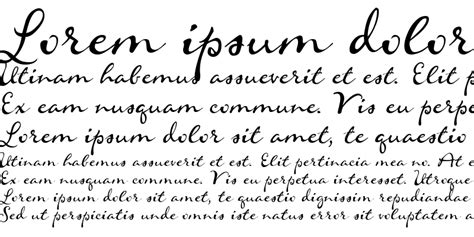 Lorem ipsum dolor
Utinam habemus assueverit et est. Elit p
Ex eam nusquam commune. Vis eu perpe
Lorem ipsum dolor sit amet, te quaestio
Utinam habemus assueverit et est. Elit pertinacia mea no. At e
Ex eam nusquam commune. Vis eu perpetua interesset. Utroque
Lorem ipsum dolor sit amet, te quaestio dignissim repudiandae
Sed ut perspiciatis unde omnis iste natus error sit voluptatem a